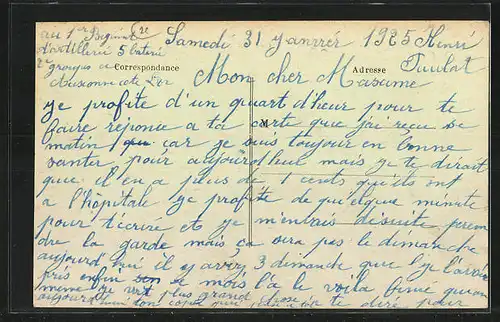 au 1er Regiment
d'artillerie 5 batrie
2e groupe a
Auxonne cote d'or
Samedi 31 Janvrér 1925 Henri
Correspondance
Adresse
Mon cher
je profite d'un quart d'heur pour te
faire réponce a ta carte que j'ai reçu se
M
matin car je suis toujour en bonne
santer pour aujourd'hui mais je te dirait
que il en a plus de 1 cents qu'ils ont
a l'hôpitale je profite de quelque minute
pour t'écrire et je m'en vais disuite prem
dre la garde mais ça sera pas le dimanche
aujourd'hui il y avez 3 dimanche que l'je l'avez
pris enfin se mois là le voila fine quan
meme je
aujourd'hui plus grand chose a te dire pour